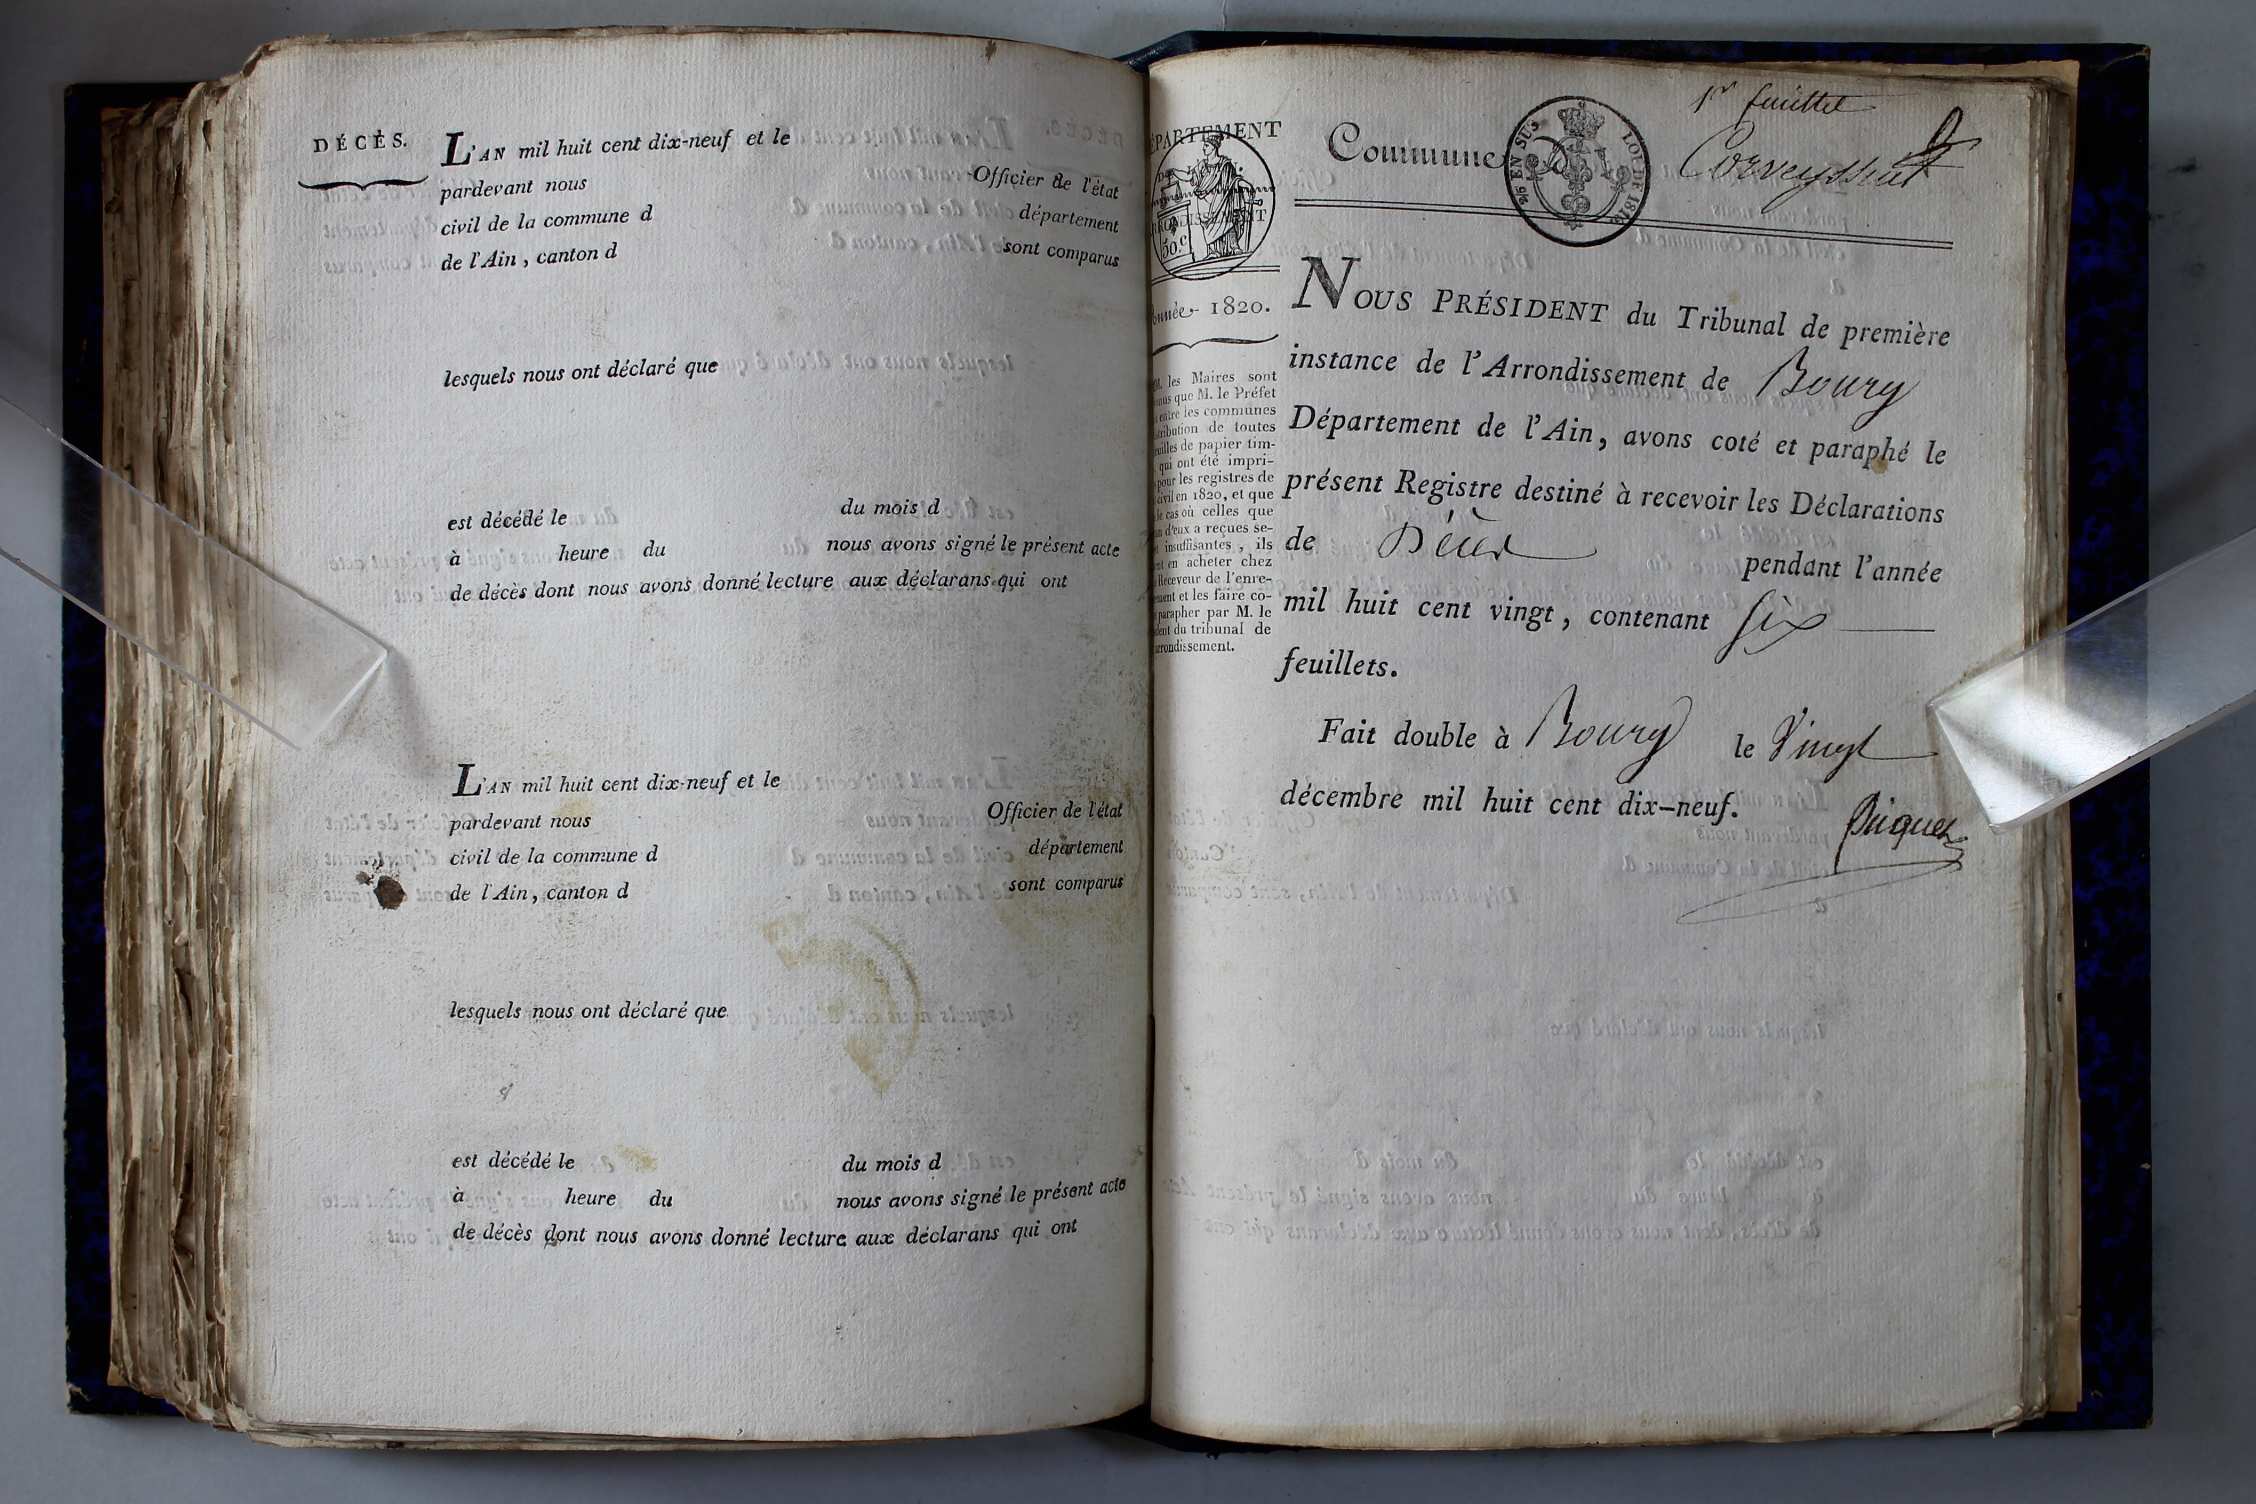 DÉCÈS.
L'AN mil huit cent dix-neuf et le
pardevant nous Officier de l'état
civil de la commune d département
de l'Ain, canton d sont comparus
lesquels nous ont déclaré que
est décédé le du mois d
à heure du nous avons signé le présent acte
de décès dont nous avons donné lecture aux déclarans qui ont
L'AN mil huit cent dix-neuf et le
pardevant nous Officier de l'état
civil de la commune d département
de l'Ain, canton d sont comparus
lesquels nous ont déclaré que
est décédé le du mois d
à heure du nous avons signé le présent acte
de décès dont nous avons donné lecture aux déclarans qui ont
1er feuillet
DÉPARTEMENT
ARRONDISSEMENT
50.c
Année 1820.
les Maires sont
que M. le Préfet
entre les communes
de toutes
de papier tim-
qui ont été impri-
pour les registres de
civil en 1820, et que
le cas où celles que
d'eux a reçues se-
insuffisantes, ils
en acheter chez
Receveur de l'enre-
et les faire co-
parapher par M. le
du tribunal de
arrondissement.
Commune
EN SUS
LOI DE 1816
Corveyssiat
NOUS PRÉSIDENT du Tribunal de première
instance de l'Arrondissement de Bourg
Département de l'Ain, avons coté et paraphé le
présent Registre destiné à recevoir les Déclarations
de Décès pendant l'année
mil huit cent vingt, contenant six
feuillets.
Fait double à Bourg le Vingt
décembre mil huit cent dix-neuf.
Piquet